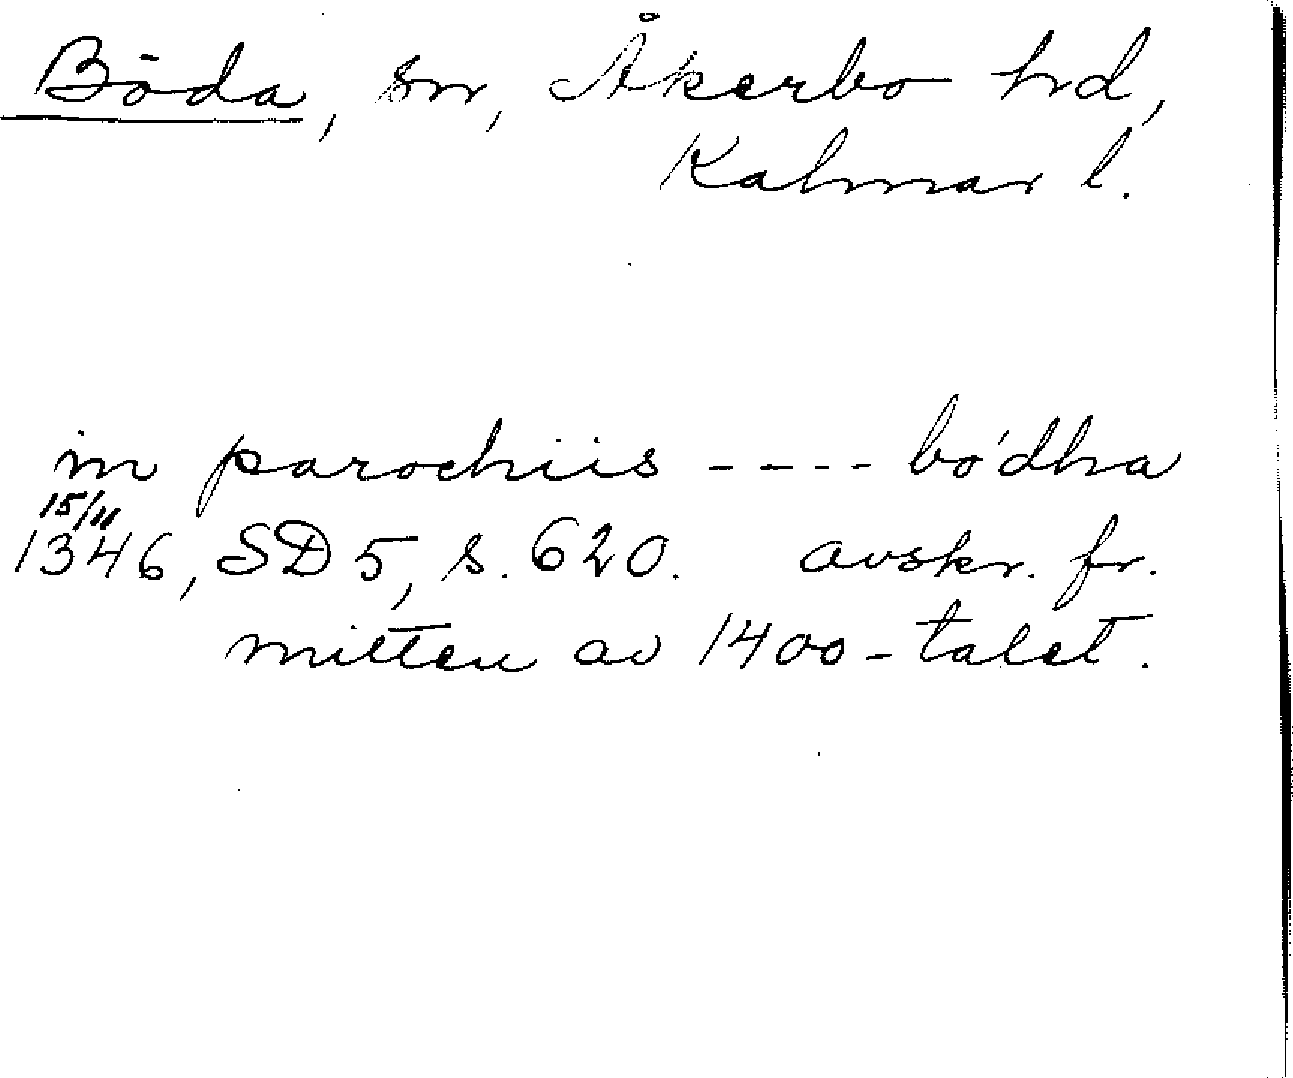 Böda, sn, Åkerbo hd,
Kalmar l.
in parochiis ---- bódha
15/11
1346, SD 5, s. 620. avskr. fr.
mitten av 1400-talet.